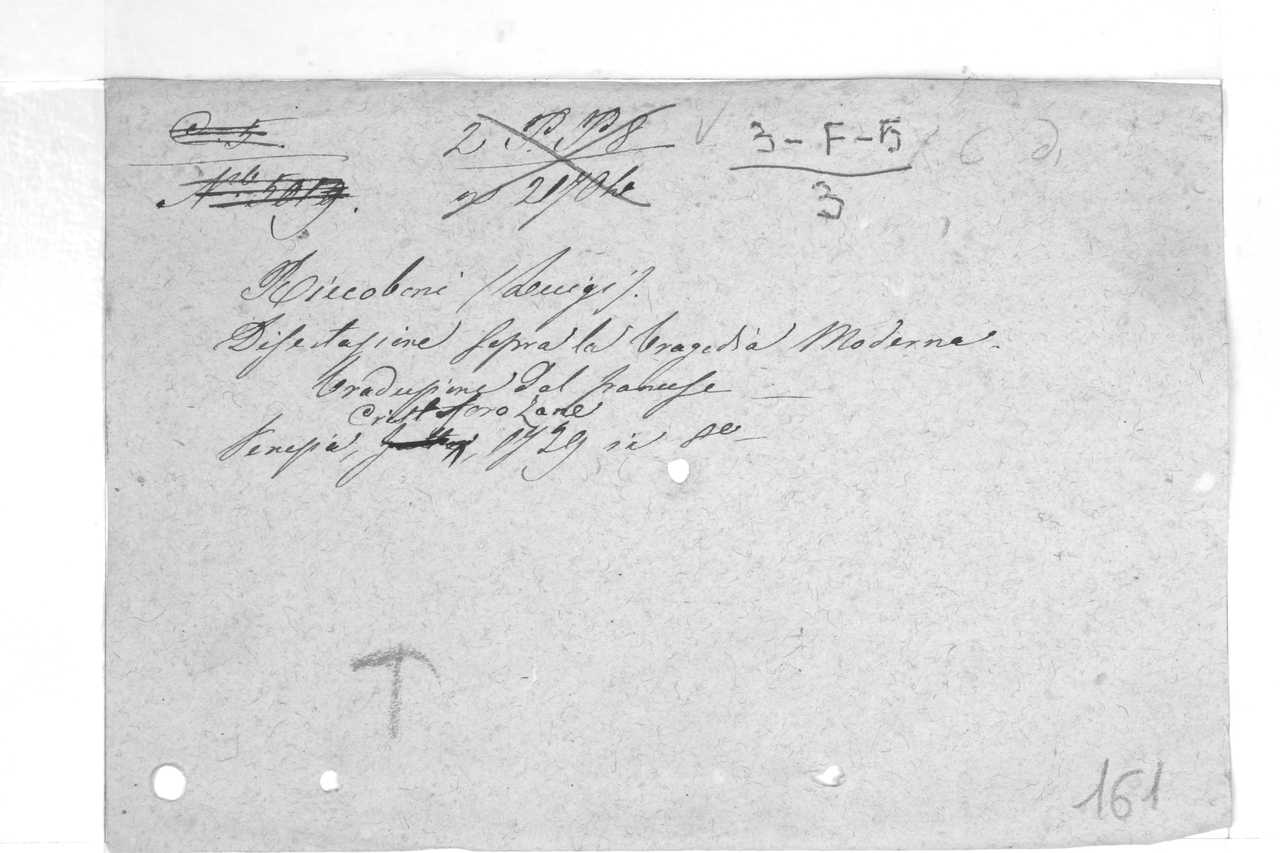 3-F-5
3
Riccoboni (Luigi).
Disertazione sopra la tragedia Moderna.
traduzione dal francese
Cristoforo Zane
Venezia, 1729 in 8º
161